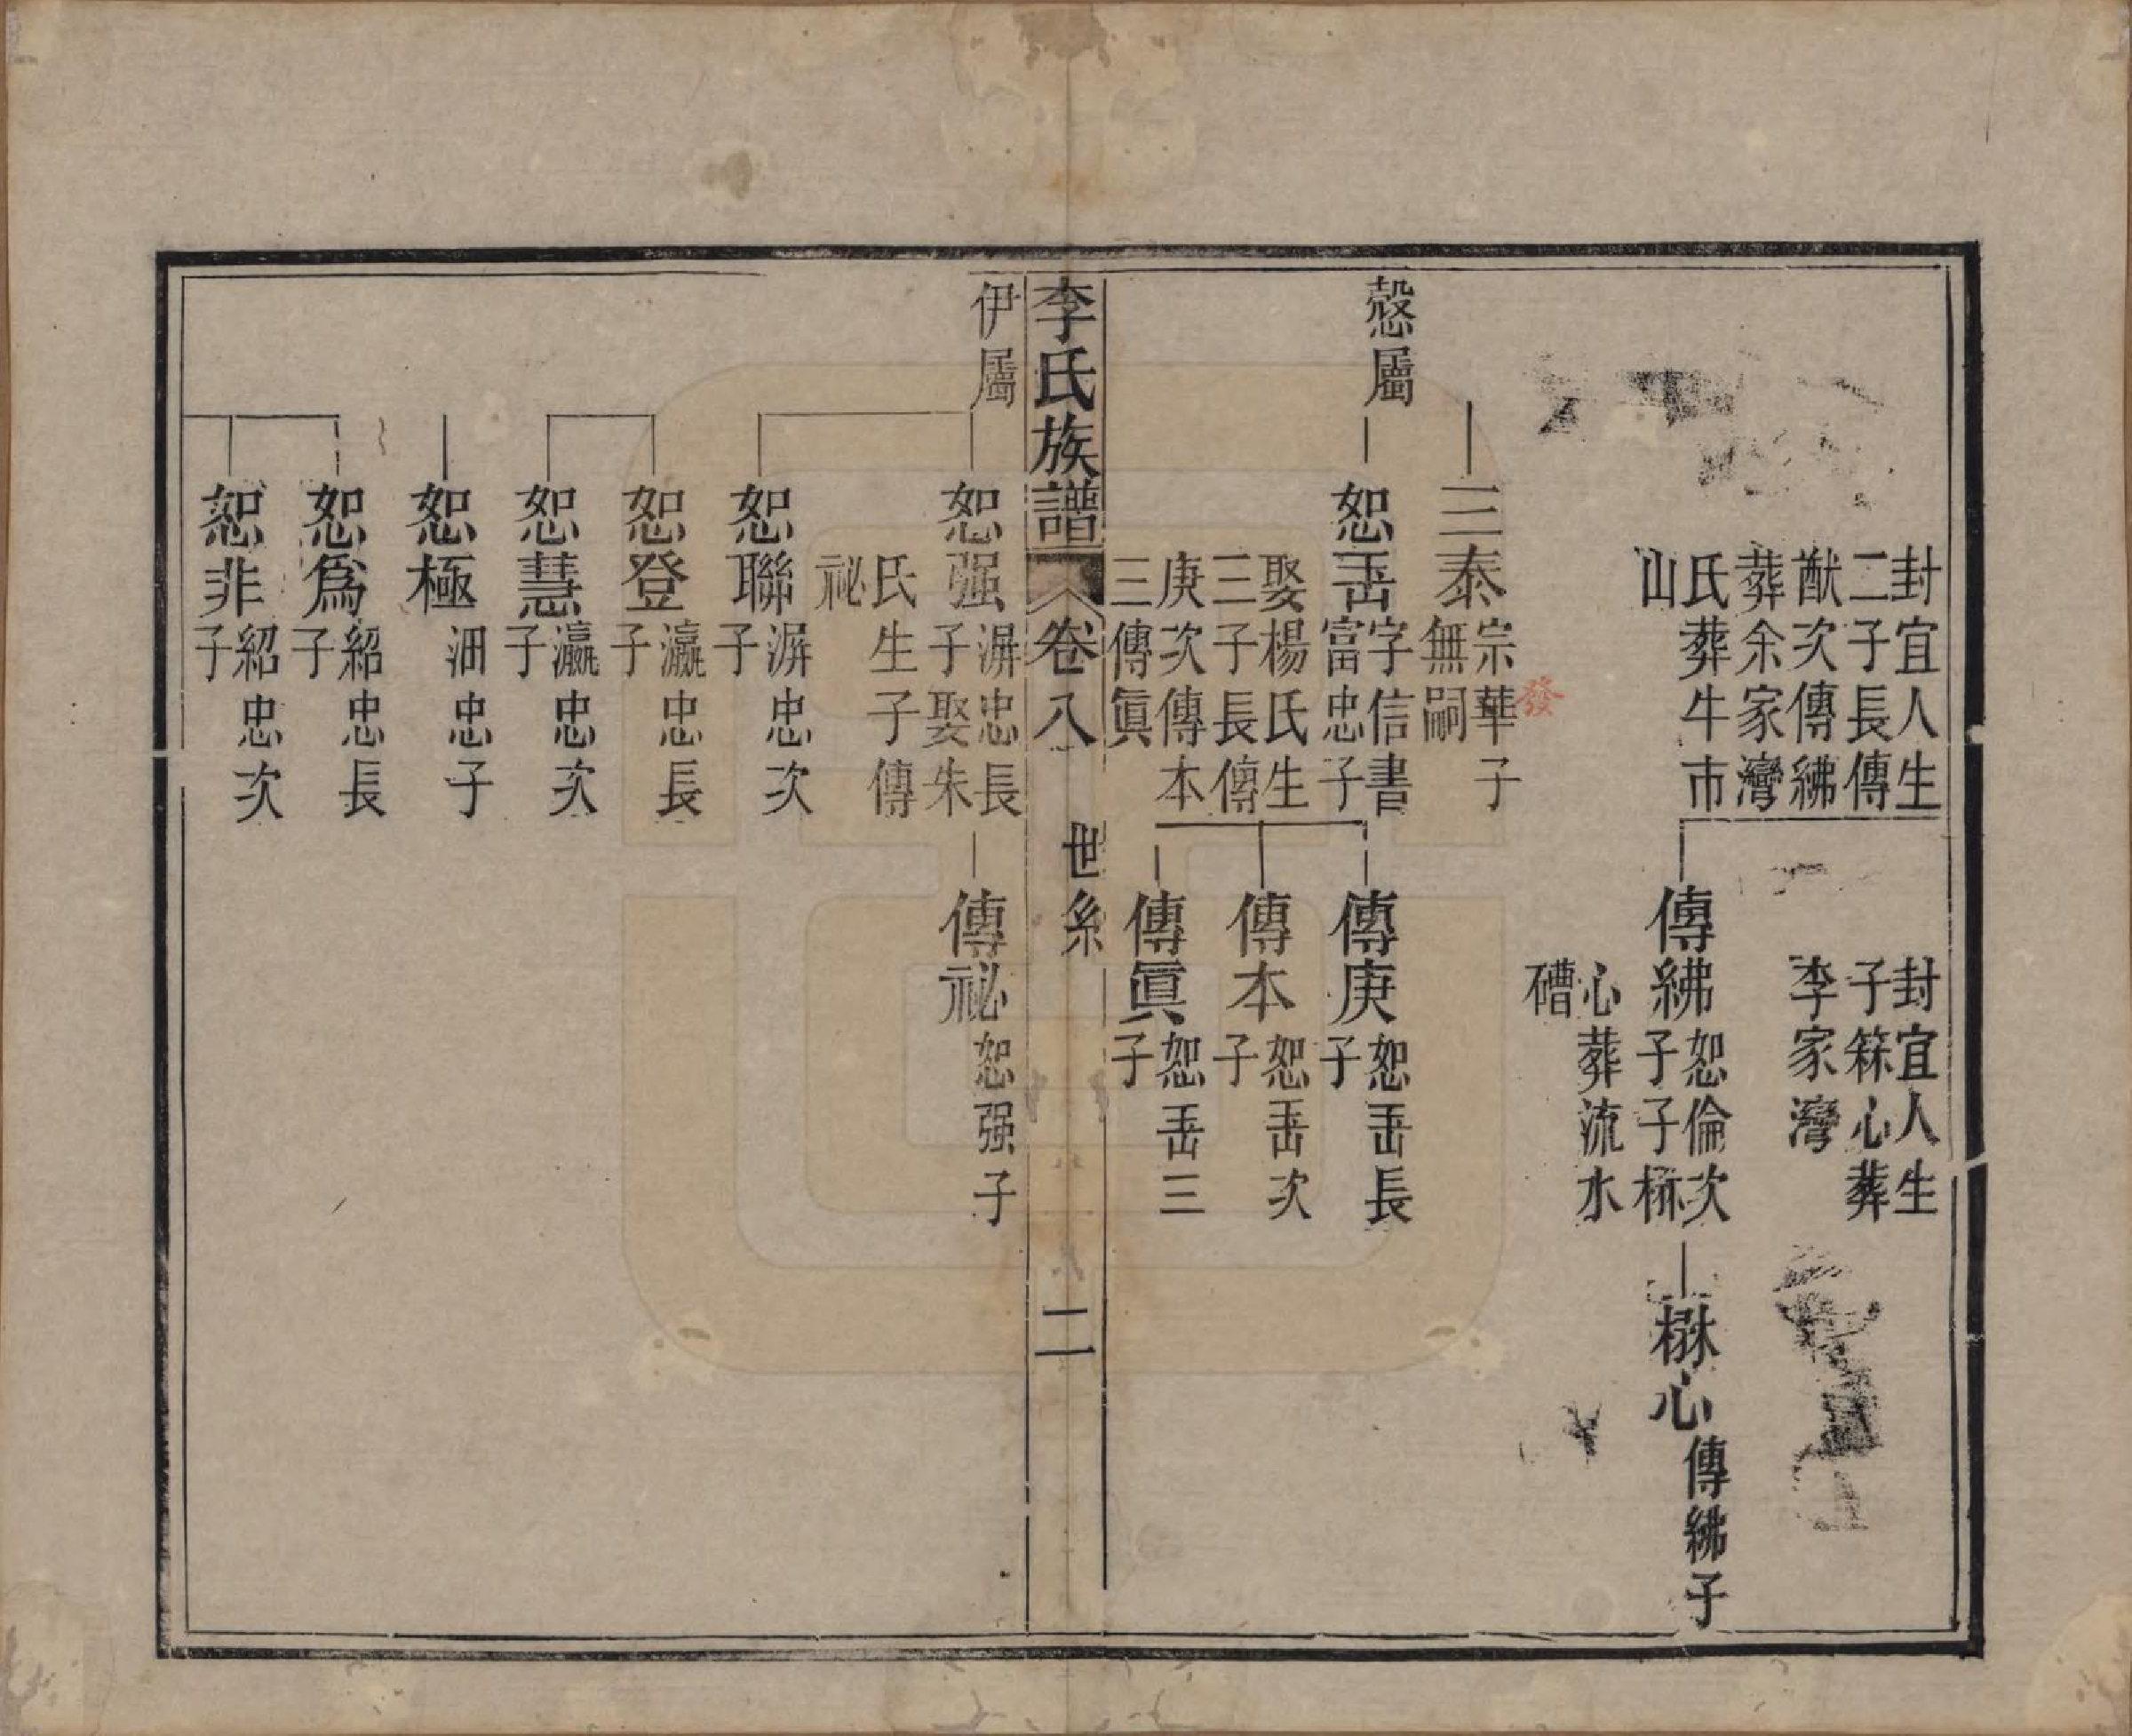 封宜人生
二子長傳
猷次傳紼
葬余家灣
氏葬牛市
山
封宜人生
子箖心葬
李家灣
傳紼
恕倫次
子子楙
心葬流水
磄
楙心
傳紼子
三泰
宗華子
無嗣
發
愨屬
恕岙
字信書
富忠子
娶楊氏生
三子長傳
庚次傳本
三傳眞
傳庚
恕岙長
子
傳本
恕岙次
子
傳眞
恕岙三
子
李氏族譜
卷八
世系
二
伊屬
恕强
澼忠長
子娶朱
氏生子傳
祕
傳祕
恕强子
恕聯
澼忠次
子
恕登
瀛忠長
子
恕慧
瀛忠次
子
恕極
沺忠子
恕爲
紹忠長
子
恕非
紹忠次
子